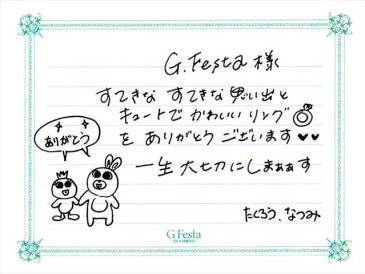 G.Festa 様
すてきな すてきな 思い出と
キュートで かわいい リング
を ありがとう ございます♥♥
ありがとう
一生 大切にしまぁぁす
たくろう、なつみ
G.Festa